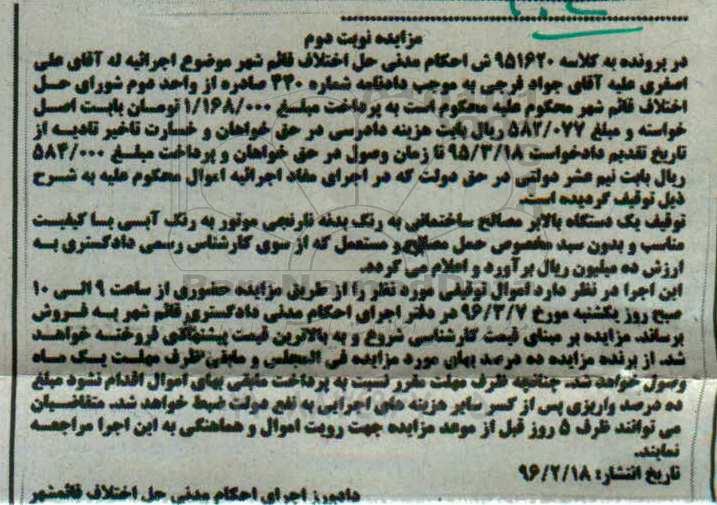 مزایده نوبت دوم
در پرونده به کلاسه ۹۵۱۶۲۰ ش احکام مدنی حل اختلاف قائم شهر موضوع اجرائیه له آقای علی
اصغری علیه آقای جواد فرجی به موجب دادنامه شماره ۴۴۰ صادره از واحد دوم شورای حل
اختلاف قائم شهر محکوم علیه محکوم است به پرداخت مبلغ ۱/۱۶۸/۰۰۰ تومان بابت اصل
خواسته و مبلغ ۵۸۲/۰۷۷ ریال بابت هزینه دادرسی در حق خواهان و خسارت تاخیر تادیه از
تاریخ تقدیم دادخواست ۹۵/۳/۱۸ تا زمان وصول در حق خواهان و پرداخت مبلغ ۵۸۴/۰۰۰
ریال بابت نیم عشر دولتی در حق دولت که در اجرای مفاد اجرائیه اموال محکوم علیه به شرح
ذیل توقیف گردیده است.
توقیف یک دستگاه بالابر مصالح ساختمانی به رنگ بدنه نارنجی موتور به رنگ آبی با کیفیت
مناسب و بدون سبد مخصوص حمل مصالح و مستعمل که از سوی کارشناس رسمی دادگستری به
ارزش ده میلیون ریال برآورد و اعلام می گردد.
این اجرا در نظر دارد اموال توقیفی مورد نظر را از طریق مزایده حضوری از ساعت ۹ الی ۱۰
صبح روز یکشنبه مورخ ۹۶/۳/۷ در دفتر اجرای احکام مدنی دادگستری قائم شهر به فروش
برساند. مزایده بر مبنای قیمت کارشناسی شروع و به بالاترین قیمت پیشنهادی فروخته خواهد
شد. از برنده مزایده ده درصد بهای مورد مزایده فی المجلس و مابقی ظرف مهلت یک ماه
وصول خواهد شد. چنانچه ظرف مهلت مقرر نسبت به پرداخت مابقی بهای اموال اقدام نشود مبلغ
ده درصد واریزی پس از کسر سایر هزینه های اجرایی به نفع دولت ضبط خواهد شد. متقاضیان
می توانند ظرف ۵ روز قبل از موعد مزایده جهت رویت اموال و هماهنگی به این اجرا مراجعه
نمایند.
تاریخ انتشار: ۹۶/۲/۱۸
دادورز اجرای احکام مدنی حل اختلاف قائمشهر